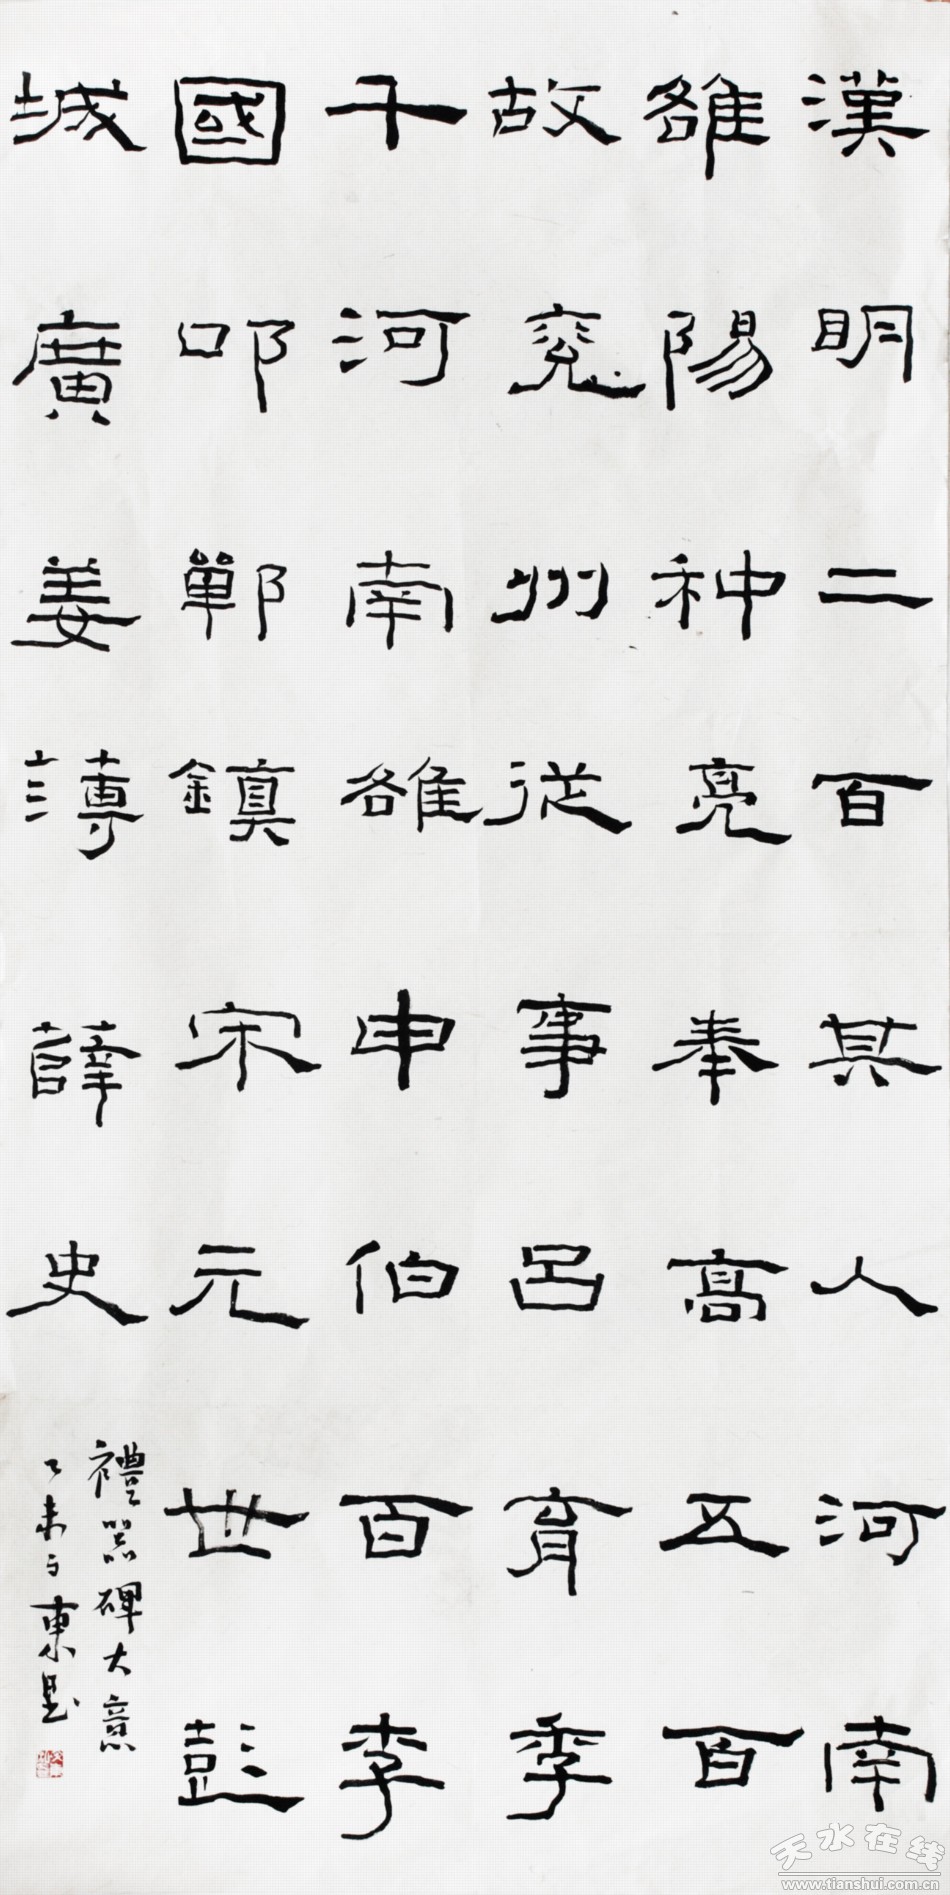 漢明二百其人河南
雒陽种亮奉高五百
故兖州從事呂育季
千河南雒申伯百李
國叩鄲鎮宋元世彭
城廣姜薄薛史
禮器碑大意
乙未東
天水在线
www.tianshui.com.cn